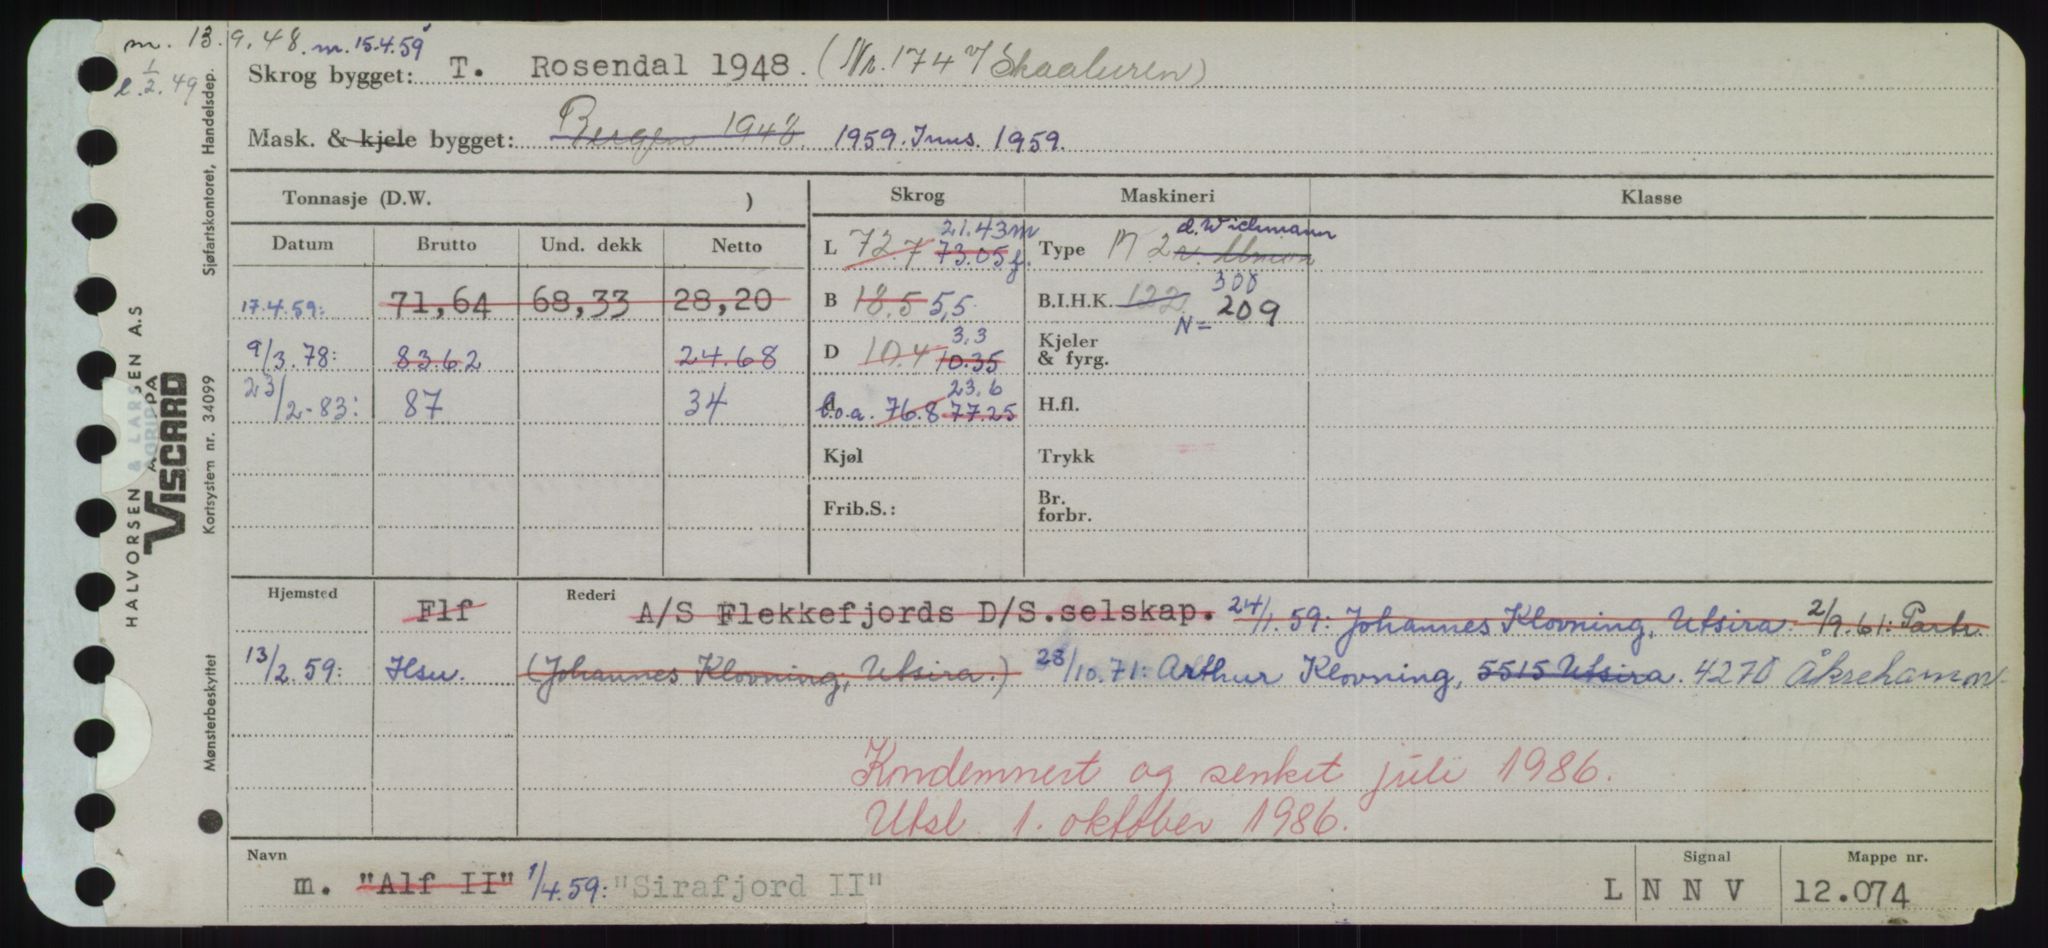 m. 13.9.48. m. 15.4.59
l. 1/2.49
Skrog bygget: T. Rosendal 1948. (Nr. 174 v/Skaaluren)
Mask. & kjele bygget: Bergen 1948. 1959. Inns. 1959.
Tonnasje (D.W. ) Skrog Maskineri Klasse
Datum Brutto Und. dekk Netto
L 72.7 73.05 f. 21.43 m
Type M 2 v. Union d. Wichmann
17.4.59: 71,64 68,33 28,20
B 18.5 5,5
B.I.H.K. 122. 300 N= 209
9/3.78: 83.62 24.68
D 10.4 10.35 3,3
Kjeler & fyrg.
23/2-83: 87 34
l.o.a. 76.8 77.25 23.6
H.fl.
Kjøl
Trykk
Frib.S.:
Br. forbr.
Hjemsted Flf Rederi A/S Flekkefjords D/S.selskap. 24/1.59: Johannes Klovning, Utsira. 2/9.61: Partr.
13/2.59: Hsu. (Johannes Klovning, Utsira.) 28/10.71: Arthur Klovning, 5515 Utsira. 4270 Åkrehamn.
Kondemnert og senket juli 1986.
Utsl. 1. oktober 1986.
Navn Signal Mappe nr.
m. "Alf II" 1/4.59: "Sirafjord II" L N N V 12.074
HALVORSEN & LARSEN A.S
VISCARD
Mønsterbeskyttet Kortsystem nr. 34099 Sjøfartskontoret, Handelsdep.